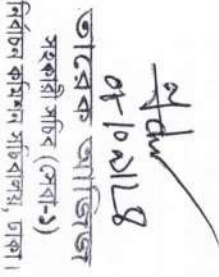 তারেক আজিজ
সহকারি সচিব (সেবা-১)
নির্বাচন কমিশন সচিবালয়, ঢাকা।